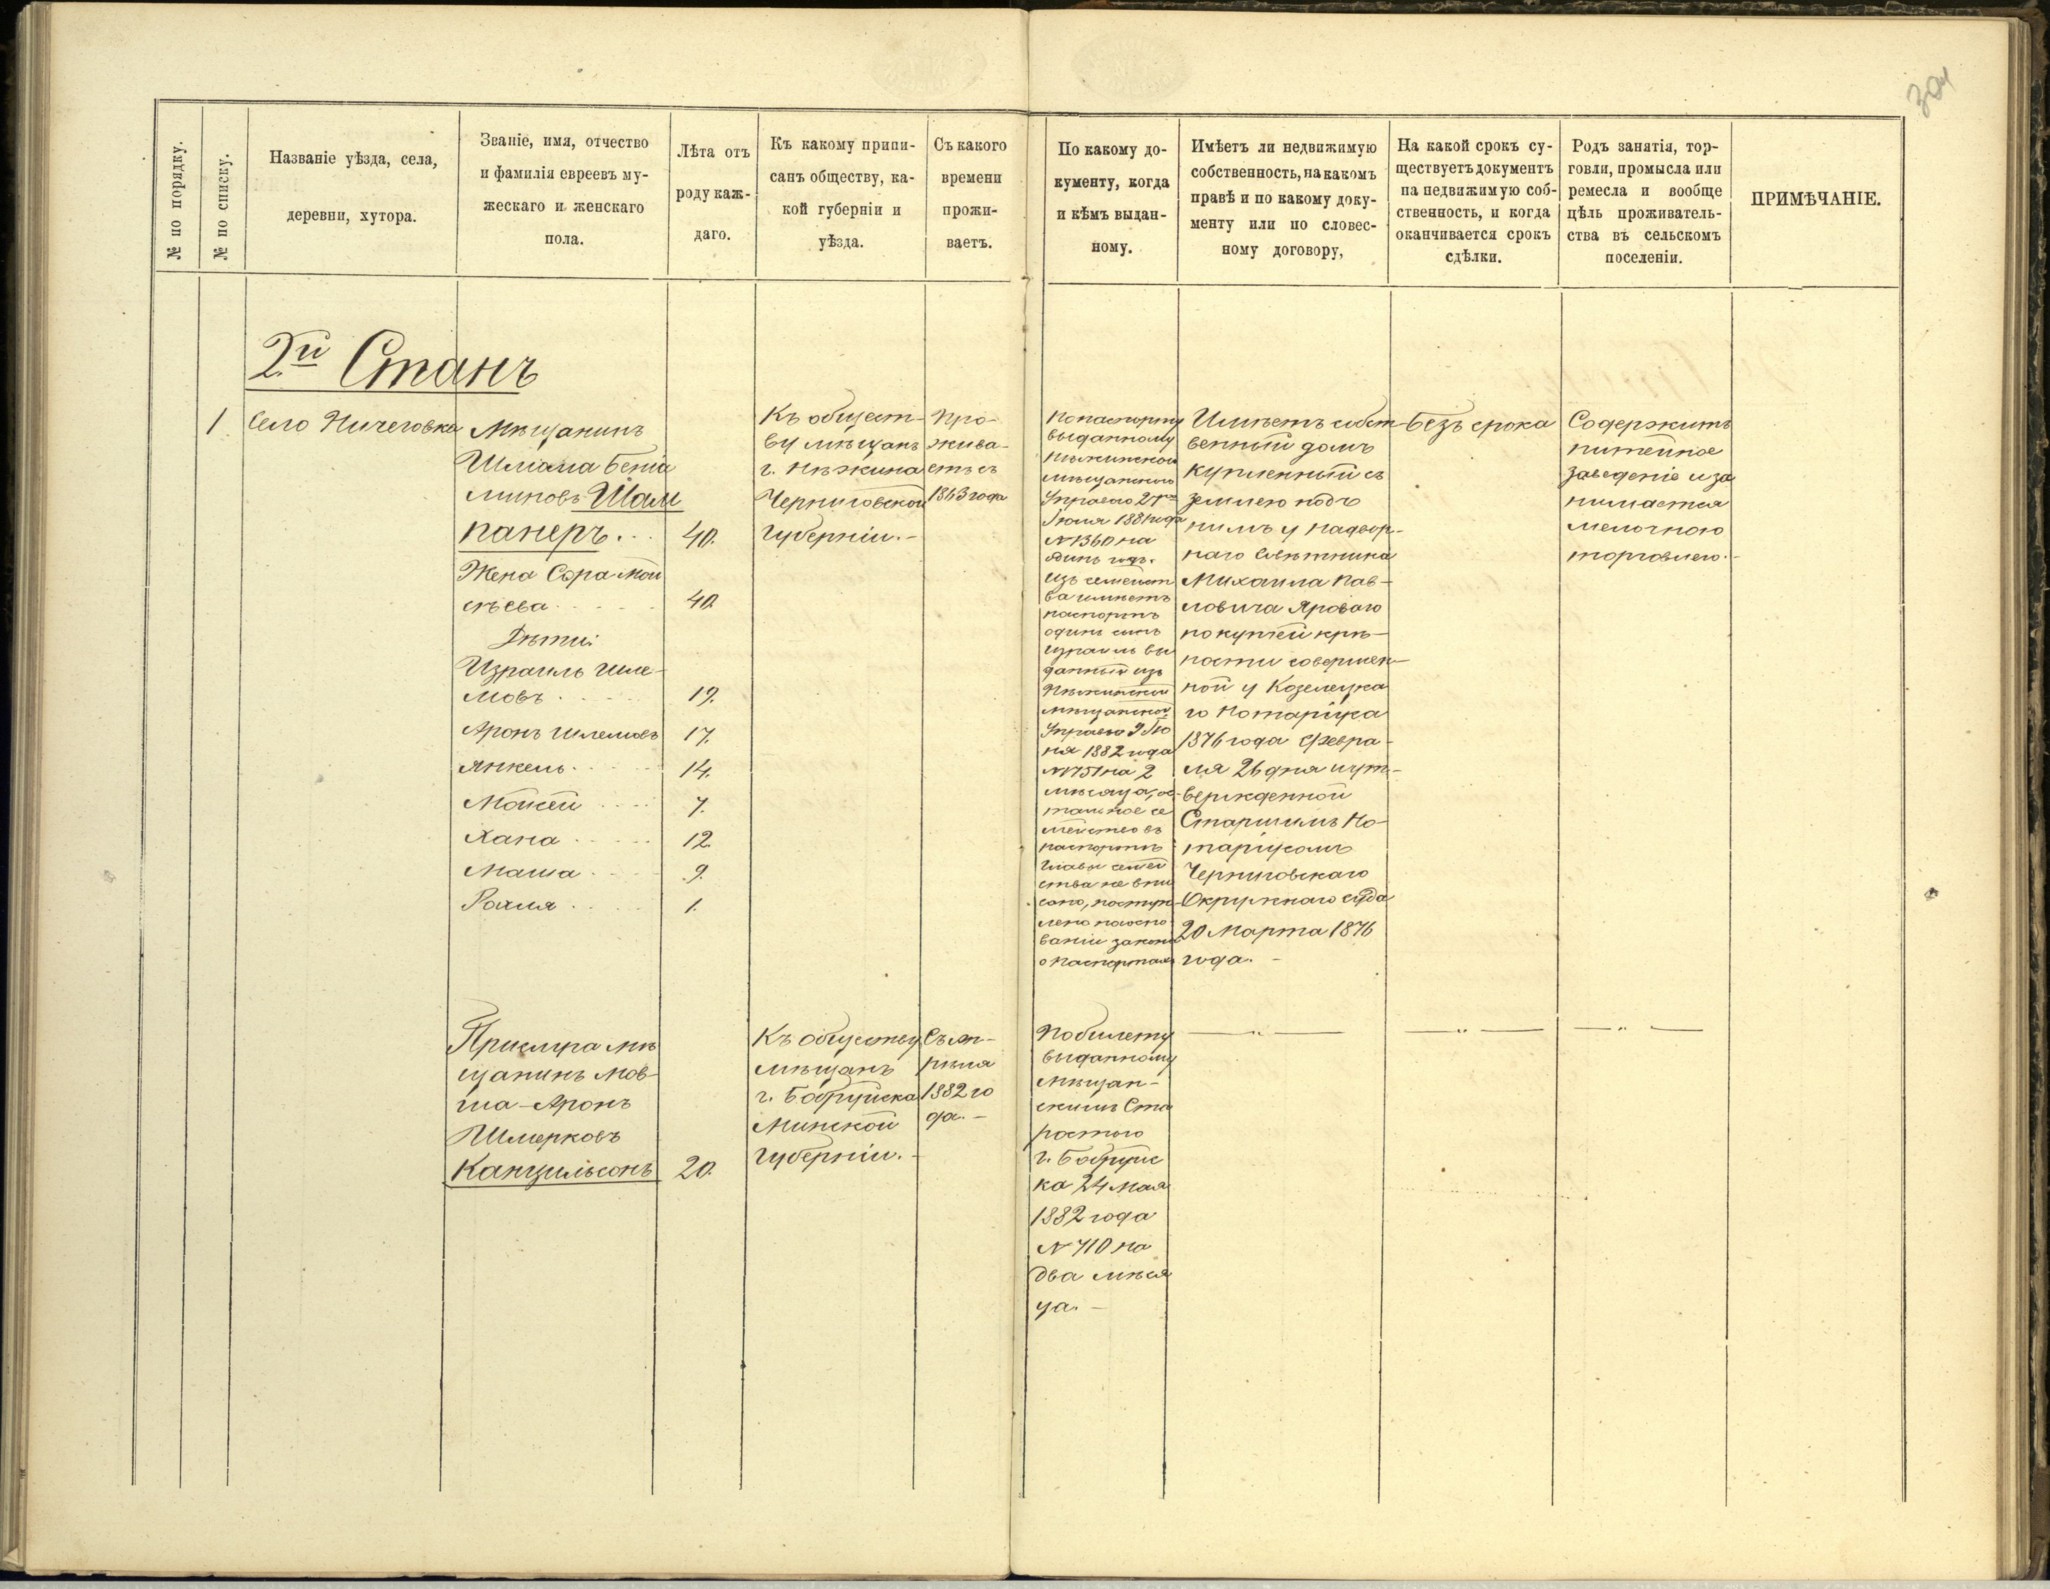 304
№ по порядку.
№ по списку.
Названіе уѣзда, села,
деревни, хутора.
Званіе, имя, отчество
и фамилія евреевъ му-
жескаго и женскаго
пола.
Лѣта отъ
роду каж-
даго.
Къ какому припи-
санъ обществу, ка-
кой губерніи и
уѣзда.
Съ какого
времени
прожи-
ваетъ.
По какому до-
кументу, когда
и кѣмъ выдан-
ному.
Имѣетъ ли недвижимую
собственность, на какомъ
правѣ и по какому доку-
менту или по словес-
ному договору,
На какой срокъ су-
ществуетъ документъ
на недвижимую соб-
ственность, и когда
оканчивается срокъ
сдѣлки.
Родъ занятія, тор-
говли, промысла или
ремесла и вообще
цѣль проживатель-
ства въ сельскомъ
поселеніи.
ПРИМѢЧАНІЕ.
2й Станъ
1
Село Ничеговка
Мѣщанинъ
Шлiома Бенiа
миновъ Шам
панеръ . . . 40.
Жена Сора Мои
сѣева . . . . 40.
Дѣти:
Израиль Шле-
мовъ . . . . 19.
Аронъ Шлемовъ 17.
Янкель . . . . 14.
Мойсей . . . . 7.
Хана . . . . 12.
Маша . . . . 9.
Рохля . . . . 1.
Къ общест-
ву мѣщанъ
г. Нѣжина
Черниговской
губерніи. -
Про-
жива-
етъ съ
1863 года
По паспорту
выданному
Нѣжинской
мѣщанской
Управою 27го
Іюля 1881 года
№ 1360 на
одинъ годъ.
Изъ семейст
ва имѣетъ
паспортъ
одинъ сынъ
Израиль вы
данный изъ
Нѣжинской
мѣщанской
Управы 9 Iю
ня 1882 года
№ 751 на 2
мѣсяца, ос-
тальное се
мейство въ
паспортъ
главы семей
ства не впи
сано, поступ-
лено на осно
ваніи закона
о паспортахъ
Имѣетъ собст-
венный домъ
купленный съ
землею подъ
нимъ у надвор-
наго Совѣтника
Михаила Пав-
ловича Яроваго
по купчей крѣ-
пости совершен-
ной у Козелецка
го Нотаріуса
1876 года Февра-
ля 26 дня и ут-
вержденной
Старшимъ Но-
таріусомъ
Черниговскаго
Окружнаго суда
20 Марта 1876
года. -
Безъ срока
Содержитъ
питейное
заведеніе и за
нимается
мелочною
торговлею. -
Прислуга мѣ
щанинъ Мов-
ша-Аронъ
Шмерковъ
Канцильсонъ 20.
Къ обществу
мѣщанъ
г. Бобруйска
Минской
губерніи. -
Съ Ап-
рѣля
1882 го
да. -
По билету
выданному
мѣщан-
скимъ Ста
ростою
г. Бобруйс
ка 24 Мая
1882 года
№ 710 на
два мѣся
ца. -
— „ —
— „ —
— „ —